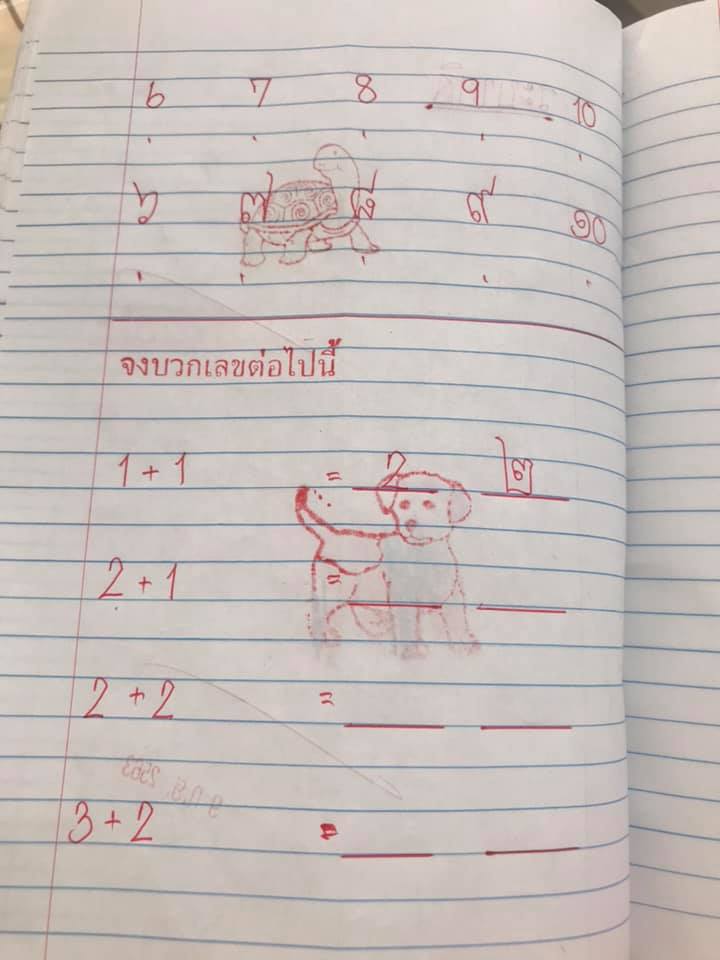 6 7 8 9 10
๖ ๗ ๘ ๙ ๑๐
จงบวกเลขต่อไปนี้
1 + 1 = 2 ๒
2 + 1 =
2 + 2 =
3 + 2 =